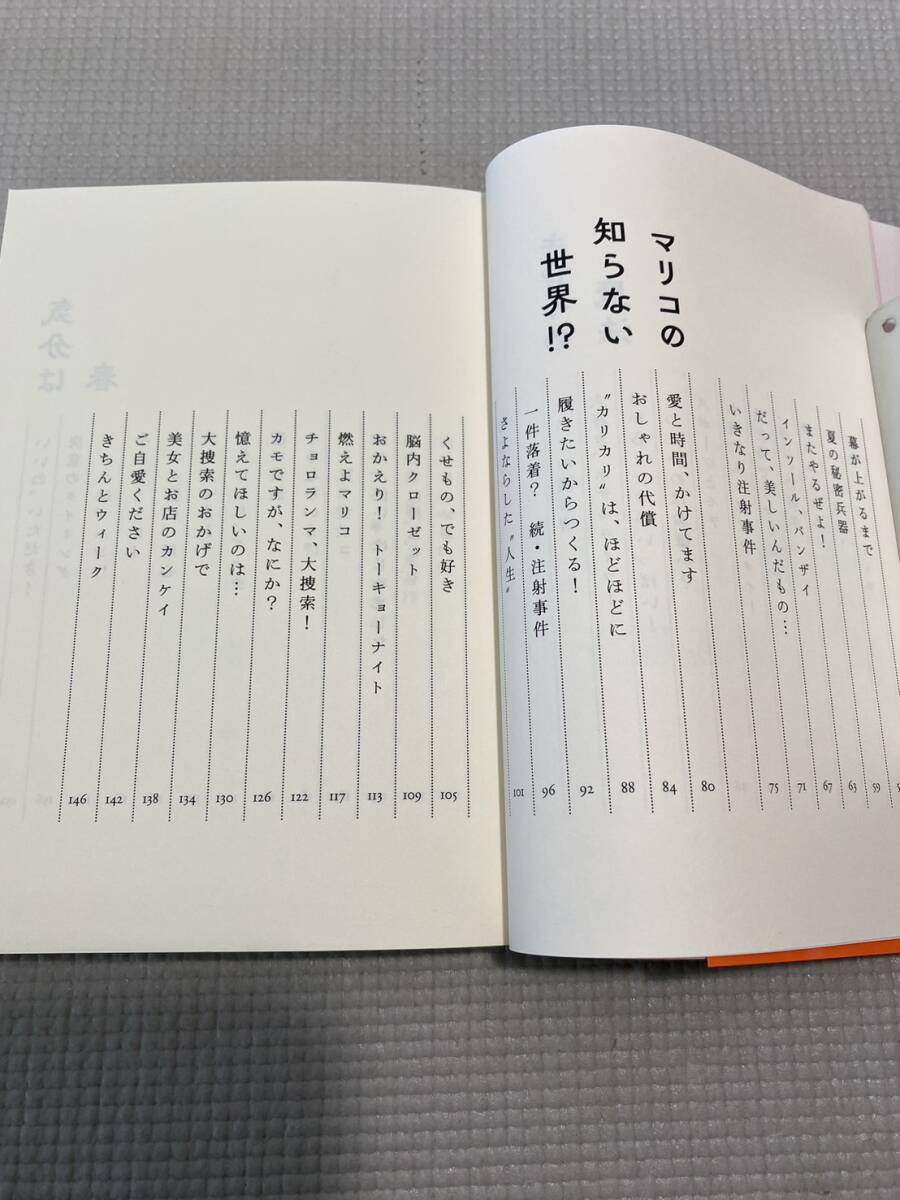 幕が上がるまで
夏の秘密兵器 59
またやるぜよ! 63
インソール、バンザイ 67
だって、美しいんだもの… 71
いきなり注射事件 75
マリコの
知らない
世界!?
愛と時間、かけてます 80
おしゃれの代償 84
〝カリカリ〟は、ほどほどに 88
履きたいからつくる! 92
一件落着? 続・注射事件 96
さよならした〝人生〟 101
くせもの、でも好き 105
脳内クローゼット 109
おかえり! トーキョーナイト 113
燃えよマリコ 117
チョロランマ、大捜索! 122
カモですが、なにか? 126
憶えてほしいのは… 130
大捜索のおかげで 134
美女とお店のカンケイ 138
ご自愛ください 142
きちんとウィーク 146
気分は
春